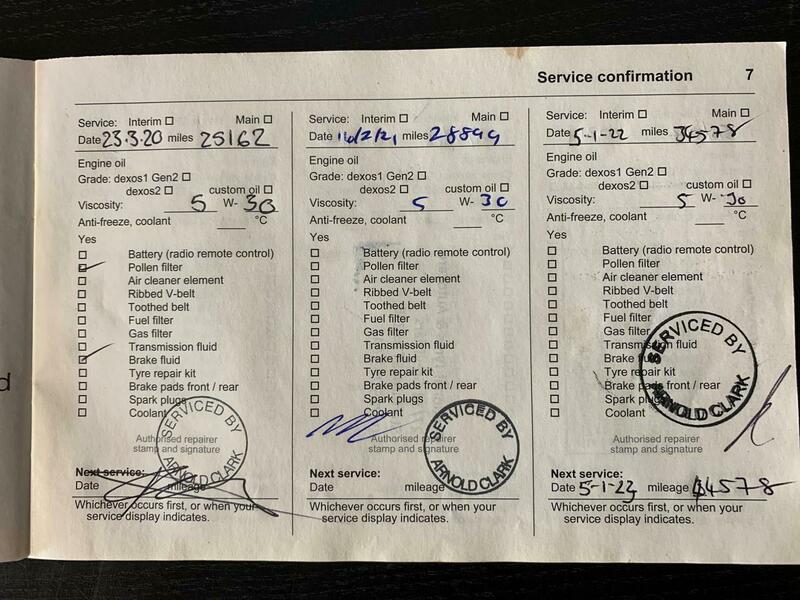 Service confirmation 7
Service: Interim Main
Date 23.3.20 miles 25162
Engine oil
Grade: dexos1 Gen2
dexos2 custom oil
Viscosity: 5 W- 30
Anti-freeze, coolant °C
Yes
Battery (radio remote control)
Pollen filter
Air cleaner element
Ribbed V-belt
Toothed belt
Fuel filter
Gas filter
Transmission fluid
Brake fluid
Tyre repair kit
Brake pads front / rear
Spark plugs
Coolant
SERVICED BY
ARNOLD CLARK
Authorised repairer
stamp and signature
Next service:
Date mileage
Whichever occurs first, or when your
service display indicates.
Service: Interim Main
Date 16/2/21 miles 28899
Engine oil
Grade: dexos1 Gen2
dexos2 custom oil
Viscosity: 5 W- 30
Anti-freeze, coolant °C
Yes
Battery (radio remote control)
Pollen filter
Air cleaner element
Ribbed V-belt
Toothed belt
Fuel filter
Gas filter
Transmission fluid
Brake fluid
Tyre repair kit
Brake pads front / rear
Spark plugs
Coolant
SERVICED BY
ARNOLD CLARK
Authorised repairer
stamp and signature
Next service:
Date mileage
Whichever occurs first, or when your
service display indicates.
Service: Interim Main
Date 5-1-22 miles 34578
Engine oil
Grade: dexos1 Gen2
dexos2 custom oil
Viscosity: 5 W- 30
Anti-freeze, coolant °C
Yes
Battery (radio remote control)
Pollen filter
Air cleaner element
Ribbed V-belt
Toothed belt
Fuel filter
Gas filter
Transmission fluid
Brake fluid
Tyre repair kit
Brake pads front / rear
Spark plugs
Coolant
SERVICED BY
ARNOLD CLARK
Authorised repairer
stamp and signature
Next service:
Date 5-1-23 mileage 44578
Whichever occurs first, or when your
service display indicates.